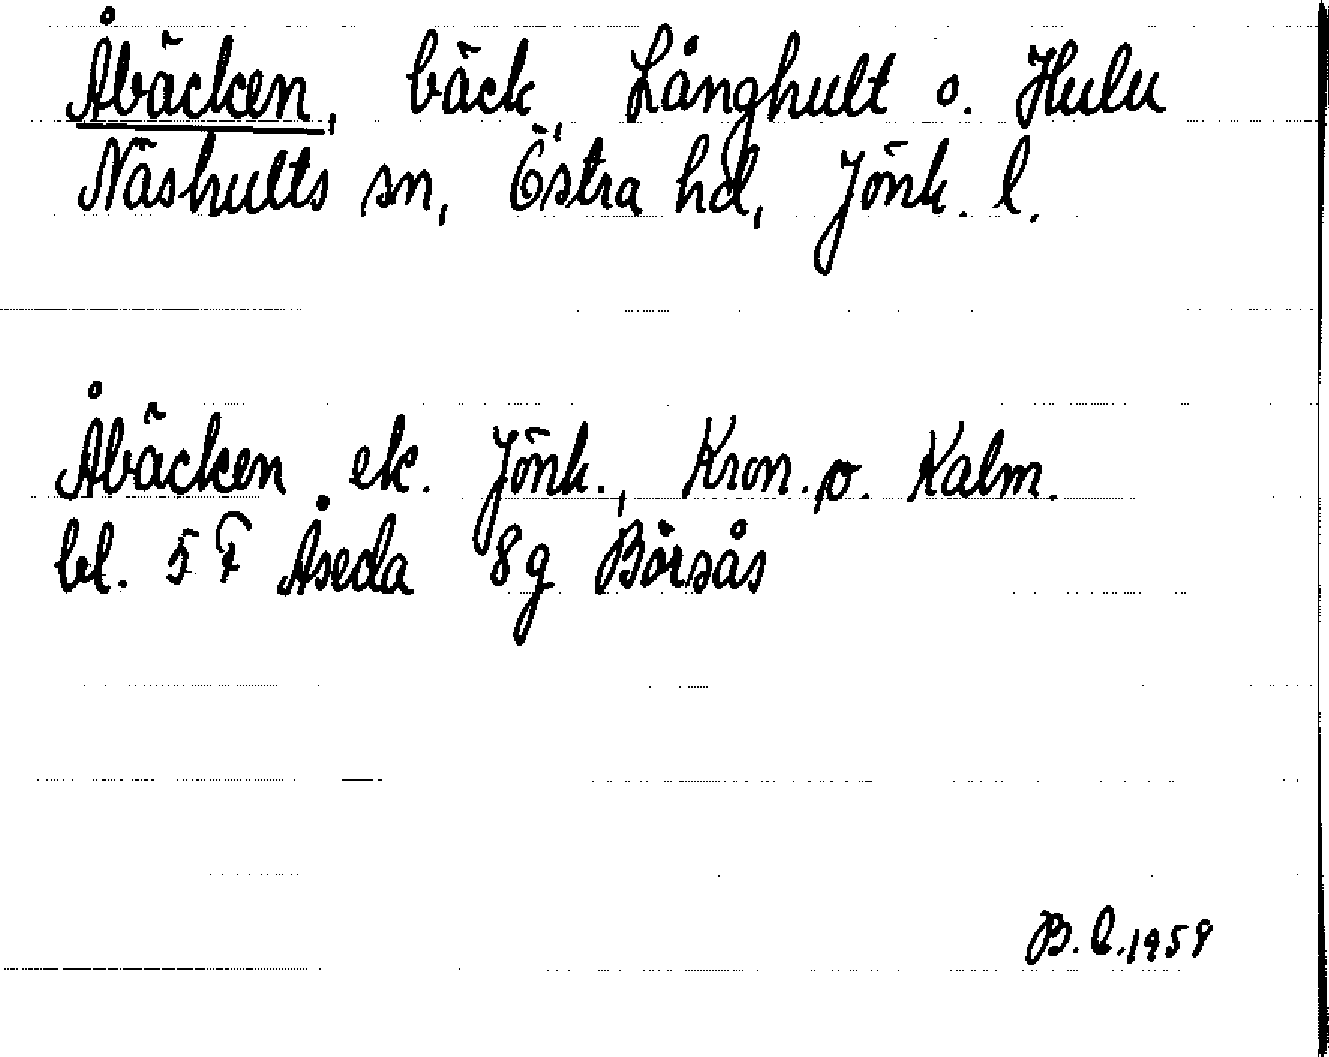 Åbäcken, bäck, Långhult o. Hulu
Näshults sn, Östra hd, Jönk. l.
Åbäcken ek. Jönk., Kron. o. Kalm.
bl. 5 F Åseda 8g Börsås
B.L.1959